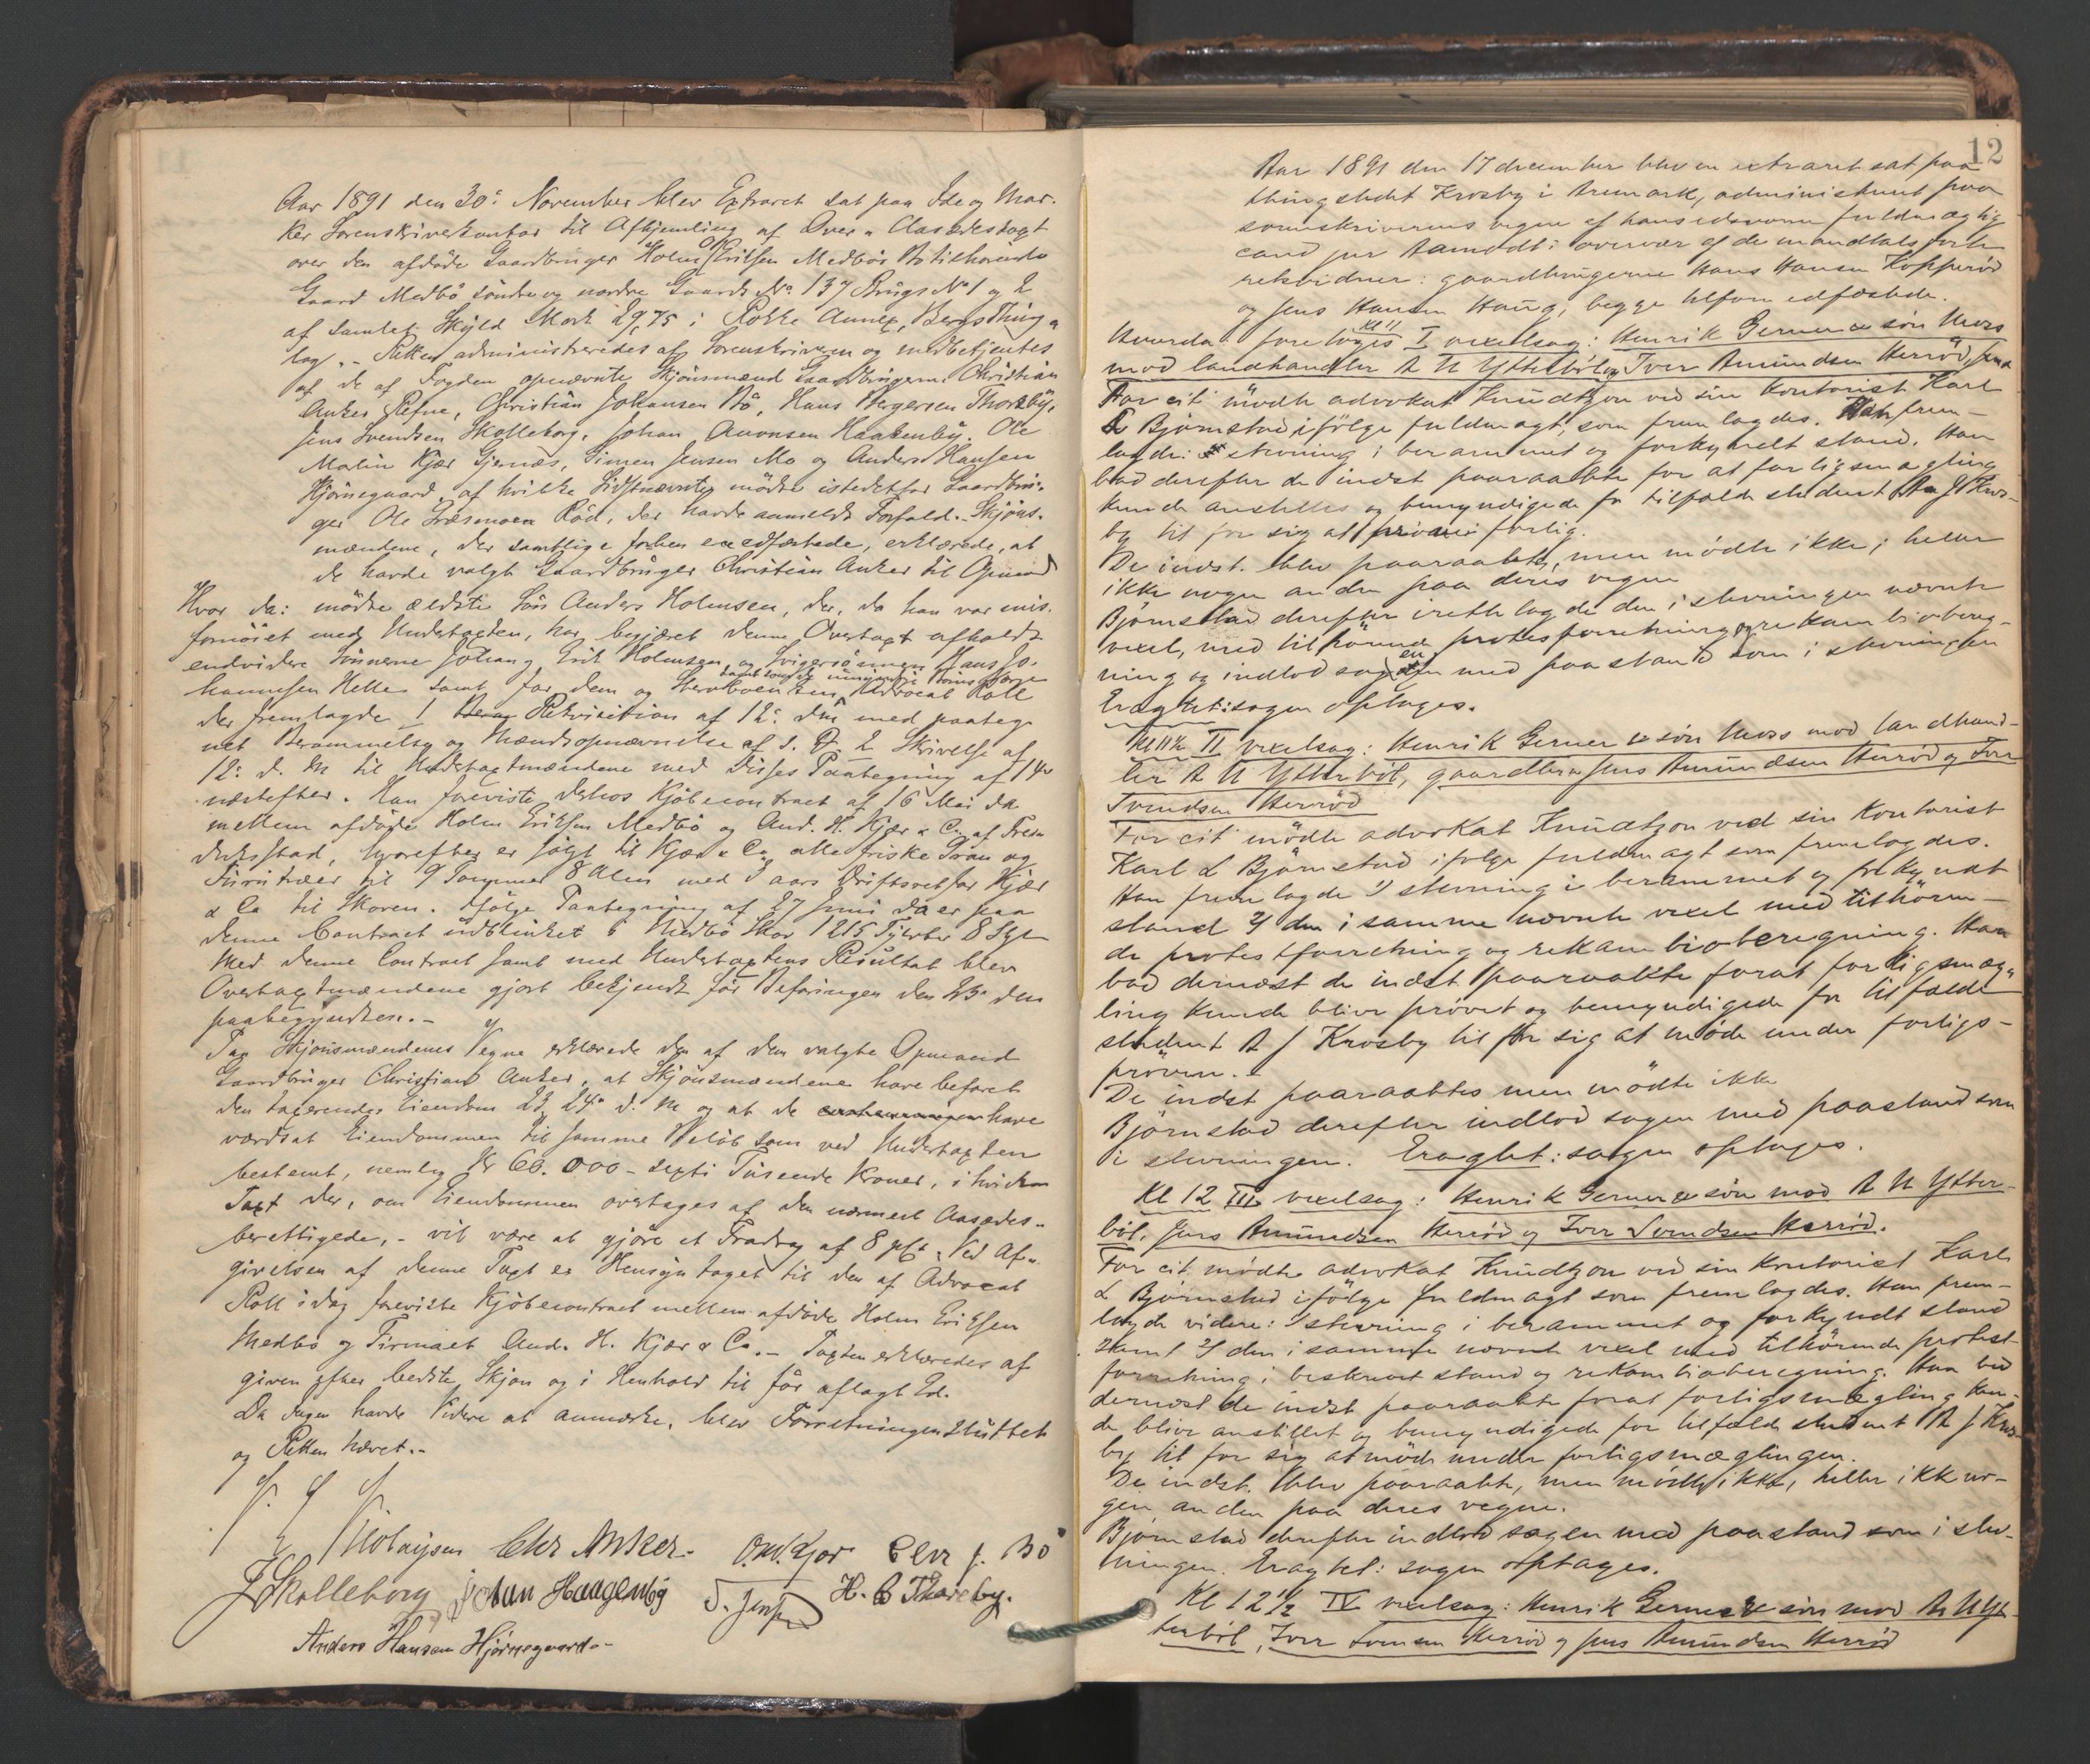 Aar 1891 den 30: November blev Extraret sat paa Ide og Mar-
ker Sorenskriverkontor til Afhjemling af Over-Aasædestaxt
over den afdöde Gaardbruger Holm Eriksen Medbös Bo tilhörende
Gaard Medbö söndre og nordre Gaards No. 137 Brugs No 1 og 2
af samlet Skyld Mark 29,75 i Rokke Annex, Bergs Thing-
lag. - Retten administreredes af Sorenskriveren og medbetjentes
af de af Fogden opnævnte Skjönsmænd Gaardbrugerne: Christian
Anker Refne, Christian Johansen Bö, Hans Bergersen Thoresby,
Jens Svendsen Skolleborg, Johan Aronsen Haakenby, Ole
Martin Kjær Gjernæs, Simen Jensen Mo og Anders Hansen
Hjörnegaard, af hvilke Sidstnævnte mödte istedetfor Gaardbru-
ger Ole Græsmoen Röd, der havde anmeldt Forfald. - Skjöns-
mændene, der samtlige forhen ere edfæstede, erklærede, at
de havde valgt Gaardbruger Christian Anker til Opmand
Hvor da: mödte ældste Sön Anders Holmsen, der, da han var mis-
fornöiet med Undertaxten, har begjæret denne Overtaxt afholdt
endvidere Sönnerne Johan og Erik Holmsen, og Svigersönnen Hans Jo-
hannesen Helle samt for dem og Sterboenken Advocat Roll
der fremlagde 1 Rekvisition af 12: dm med paateg-
net Berammelse og Mændsopnævnelse af s. D. 2 Skrivelse af
12: d. M til Undertaxtmændene med disses Paategning af 14de
næstefter. Han foreviste derhos Kjöbecontract af 16 Mai da
mellem afdöde Holm Eriksen Medbö og And. H. Kjær & Co. af Fred-
rikstad, hvorefter er solgt til Kjær & Co alle friske Gran og
Furutræer til 9 Tommer 8 Alen med 3 aars Driftsret for Kjær
& Co til Skoven. Ifölge Paategning af 27 Juni da er paa
denne Contract udblinket i Medbö Skov 1215 Tylvter 8 Stk
Med denne Contract samt med Undertaxtens Resultat blev
Overtaxtmændene gjort bekjendt för Befaringen den 23: den
paabegyndtes. -
Paa Skjönsmændenes Vegne erklærede den af dem valgte Opmand
Gaardbruger Christian Anker, at Skjönsmændene have befaret
den taxerendes Eiendom 23, 24de d. M og at de have
værdsat Eiendommen til samme Belöb som ved Undertaxten
bestemt, nemlig Kr 60.000 - sexti Tusende Kroner, i hvilken
Taxt der, om Eiendommen overtages af den nærmest Aasædes-
berettigede, - vil være at gjöre et Fradrag af 8 pCt. Ved Af-
givelsen af denne Taxt er Hensyn taget til den af Advocat
Roll idag foreviste Kjöbecontract mellem afdöde Holm Eriksen
Medbö og Firmaet And. H. Kjær & Co. - Taxten erklæredes af-
given efter bedste Skjön og i Henhold til för aflagt Ed.
Da Ingen havde Videre at anmærke, blev Forretningen sluttet
og Retten hævet. -
Chr Anker. O.M. Kjær Chr J. Bö
J Skolleborg Johan Haagenby S. Jensen H. B Thoresby.
Anders Hansen Hjörnegaard -
12
Aar 1891 den 17 december blev en extraret sat paa
thingstedet Krosby i Aremark, administreret paa
sorenskriverens vegne af hans edsvorne fuldmægtig
cand jur Aamodt i overvær af de mandtalsförte
retsvidner: gaardbrugerne Hans Hansen Kopperöd
og Jens Hansen Haug, begge tilforn edfæstede.
Hvorda: foretoges kl 11 I vexelsag: Henrik Gerner & sön Moss
mod landhandler A N Ytterböl, Iver Amundsen Herröd, Jens
For cit mödte advokat Knudtzon ved sin kontorist Karl
L Björnstad ifölge fuldmagt, som fremlagdes. Han frem-
lagde: stevning i berammet og forkyndt stand. Han
bad derefter de indst paaraabte for at forligsmægling
kunde anstilles og bemyndigede for tilfælde student A J Kros-
by til for sig at pröve forlig.
De indst. blev paaraabte, men mödte ikke, heller
ikke nogen anden paa deres vegne
Björnstad derefter irettelagde den i stevningen nævnte
vexel, med tilhörende protestforretning og rekambiobereg-
ning og indlod sagen med paastand som i stevningen
Eragtet: sagen optages.
Kl 11½ II vexelsag: Henrik Gerner & sön Moss mod landhand-
ler A N Ytterböl, gaardbr Jens Amundsen Herröd og Iver
Svendsen Herröd
For cit mödte advokat Knudtzon ved sin kontorist
Karl L Björnstad ifölge fuldmagt som fremlagdes.
Han fremlagde 1/ stevning i berammet og forkyndt
stand 2/ den i samme nævnte vexel med tilhören-
de protestforretning og rekambioberegning. Han
bad dernæst de indst paaraabte forat forligsmæg-
ling kunde blive prövet og bemyndigede for tilfælde
student A J Krosby til for sig at möde under forligs-
pröven.
De indst paaraabtes men mödte ikke
Björnstad derefter indlod sagen med paastand som
i stevningen. Eragtet: sagen optages.
Kl 12 III vexelsag: Henrik Gerner & sön mod A N Ytter-
böl, Jens Amundsen Herröd og Iver Svendsen Herröd.
For cit mödte advokat Knudtzon ved sin kontorist Karl
L Björnstad ifölge fuldmagt som fremlagdes. Han frem-
lagde videre: 1/ stevning i berammet og forkyndt stand
samt 2/ den i samme nævnte vexel med tilhörende protest-
forretning i beskrevet stand og rekambioberegning. Han bad
dernæst de indst paaraabte forat forligsmægling kun-
de blive anstillet og bemyndigede for tilfælde student A J Kros-
by til for sig at möde under forligsmæglingen.
De indst. blev paaraabte, men mödte ikke, heller ikke no-
gen anden paa deres vegne.
Björnstad derefter indlod sagen med paastand som i stev-
ningen. Eragtet: sagen optages.
Kl 12½ IV vexelsag: Henrik Gerner & sön mod A N Yt-
terböl, Iver Svendsen Herröd og Jens Amundsen Herröd